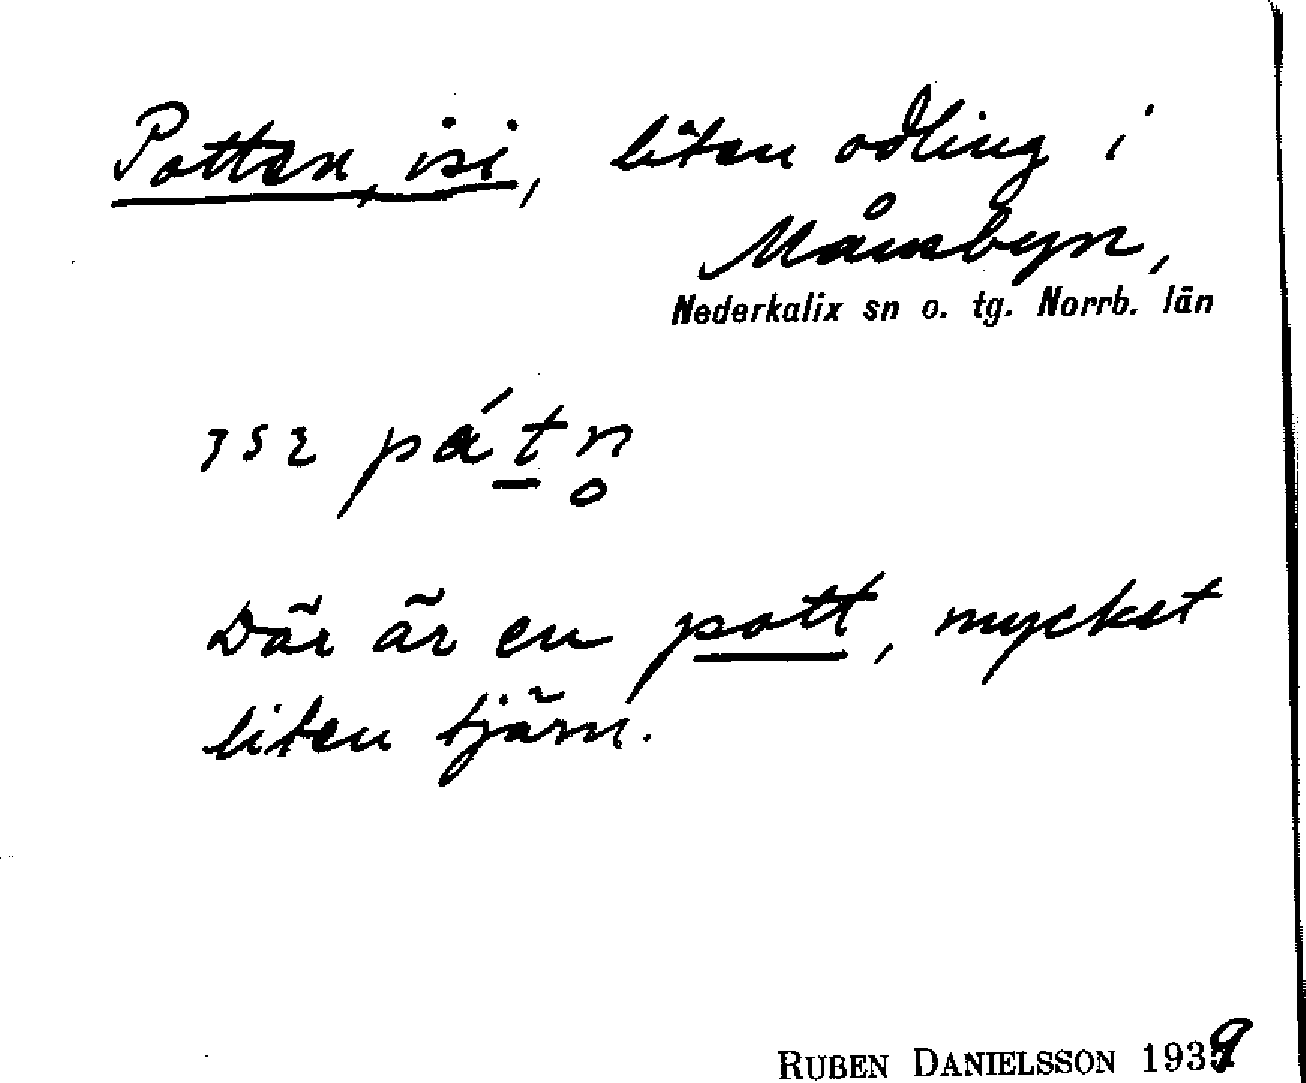 Potten, isi, liten odling i
Månsbyn,
Nederkalix sn o. tg. Norrb. län
Där är en pott, mycket
liten tjärn.
RUBEN DANIELSSON 1939